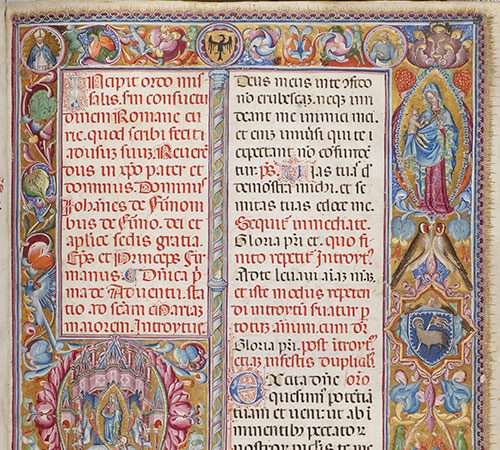 Incipit ordo mis
salis. fm consuetu
dinem Romane cu
rie. quod scribi fecit
ad usum suum. Reueren
dus in xpo pater et
dominus Dominus
Johanes de firmoni
bus de firmo. dei et
aplice sedis gratia.
Eps et Princeps fir
manus. Dnica p
ma de Aduentu. sta
tio. ad scam Mariam
maiorem. Introytus
Deus meus in te ofido
no erubescam. neq; irri
deant me inimici mei.
et eni uniusi qui te
expectant no cofuntetr
tur. ps. Uias tuas d
demostra michi. et se
mitas tuas edoce me.
Sequit immediate.
Gloria pri et. quo fi
nito repetit Introyt.
Ad te leuaui aiaz meaz.
et iste modus repeten
di introytu suatur p
totu annum. cum dr
Gloria pri. post introytu
etiaz in festis duplicib
Excita dne oro
quesum potetia
tuam et ueni: ut ab i
minentib peccator
nostror piclis te me